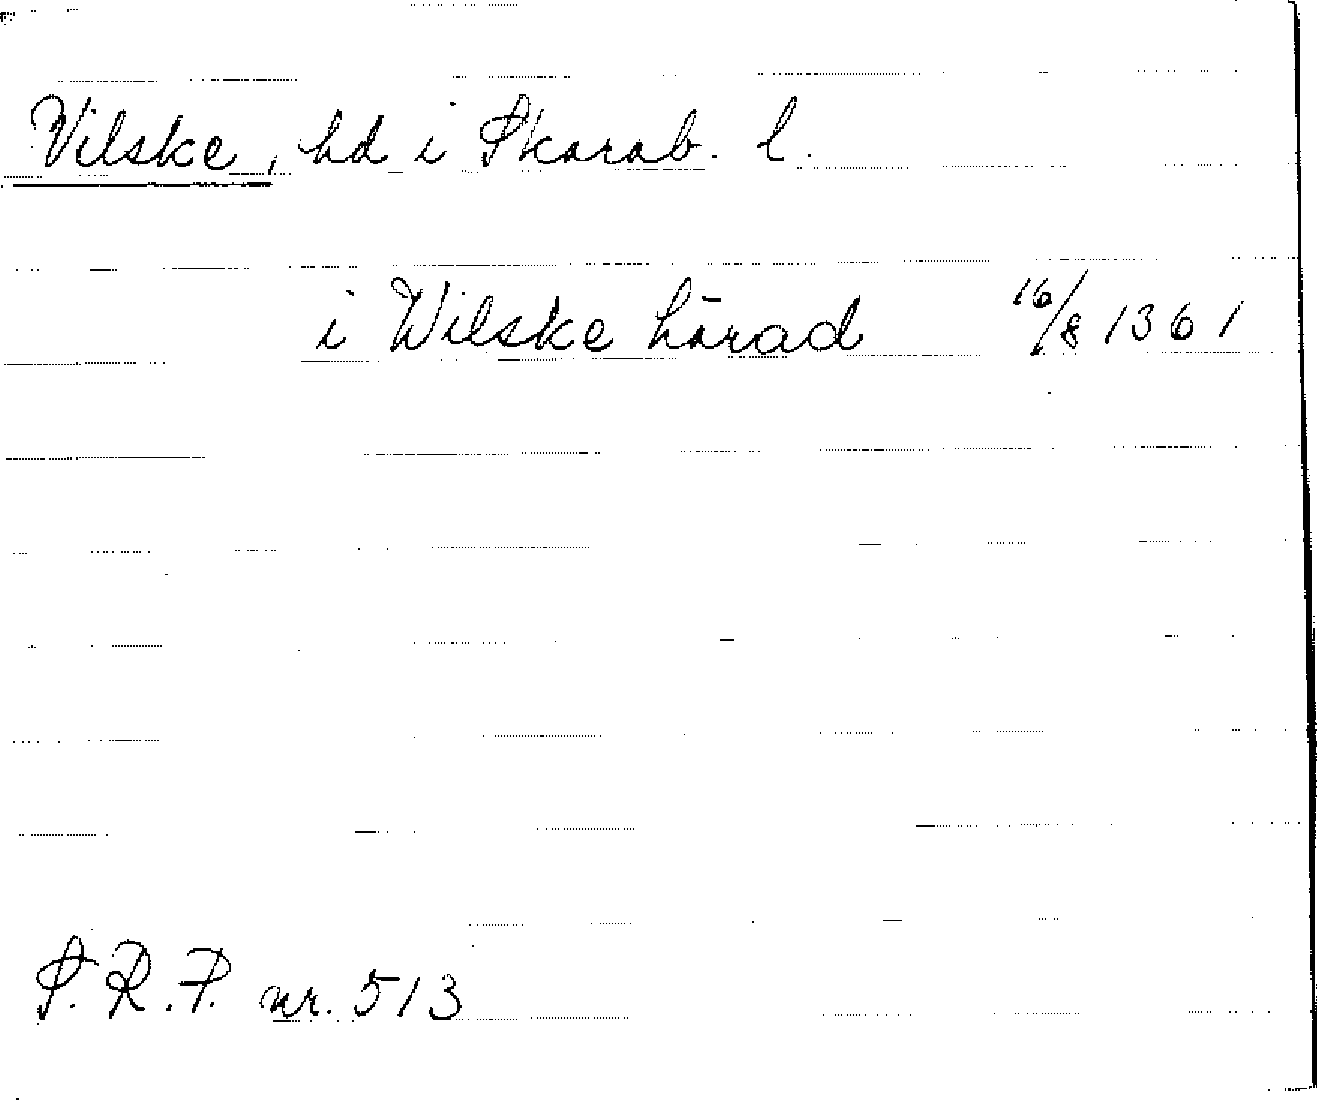 Vilske, hd i Skarab. l.
i Wilske härad 16/8 1361
S.R.P. nr. 513